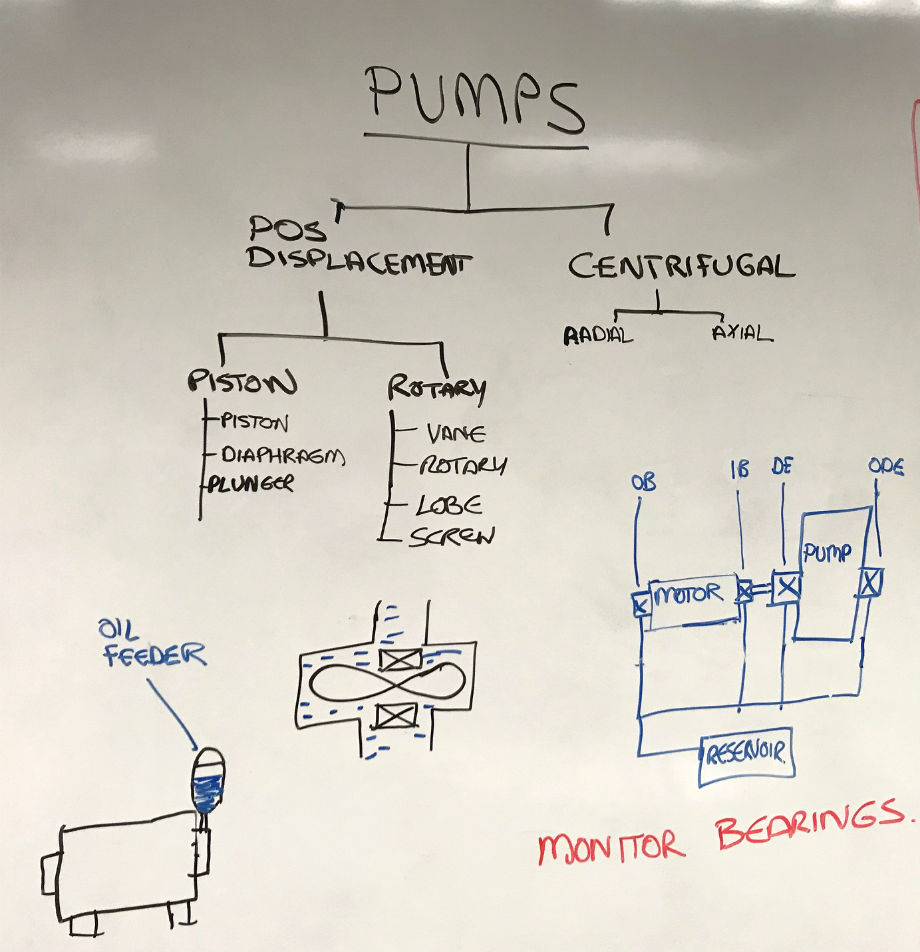 PUMPS
POS
DISPLACEMENT
CENTRIFUGAL
RADIAL
AXIAL
PISTON
PISTON
DIAPHRAGM
PLUNGER
ROTARY
VANE
ROTARY
LOBE
SCREW
OB
IB
DE
ODE
PUMP
MOTOR
RESERVOIR.
OIL
FEEDER
MONITOR BEARINGS.